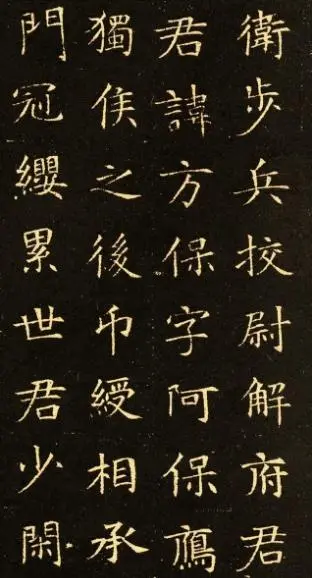 衛步兵挍尉解府君
君諱方保字阿保鴈
獨侯之後印綬相承
門冠纓累世君少閑